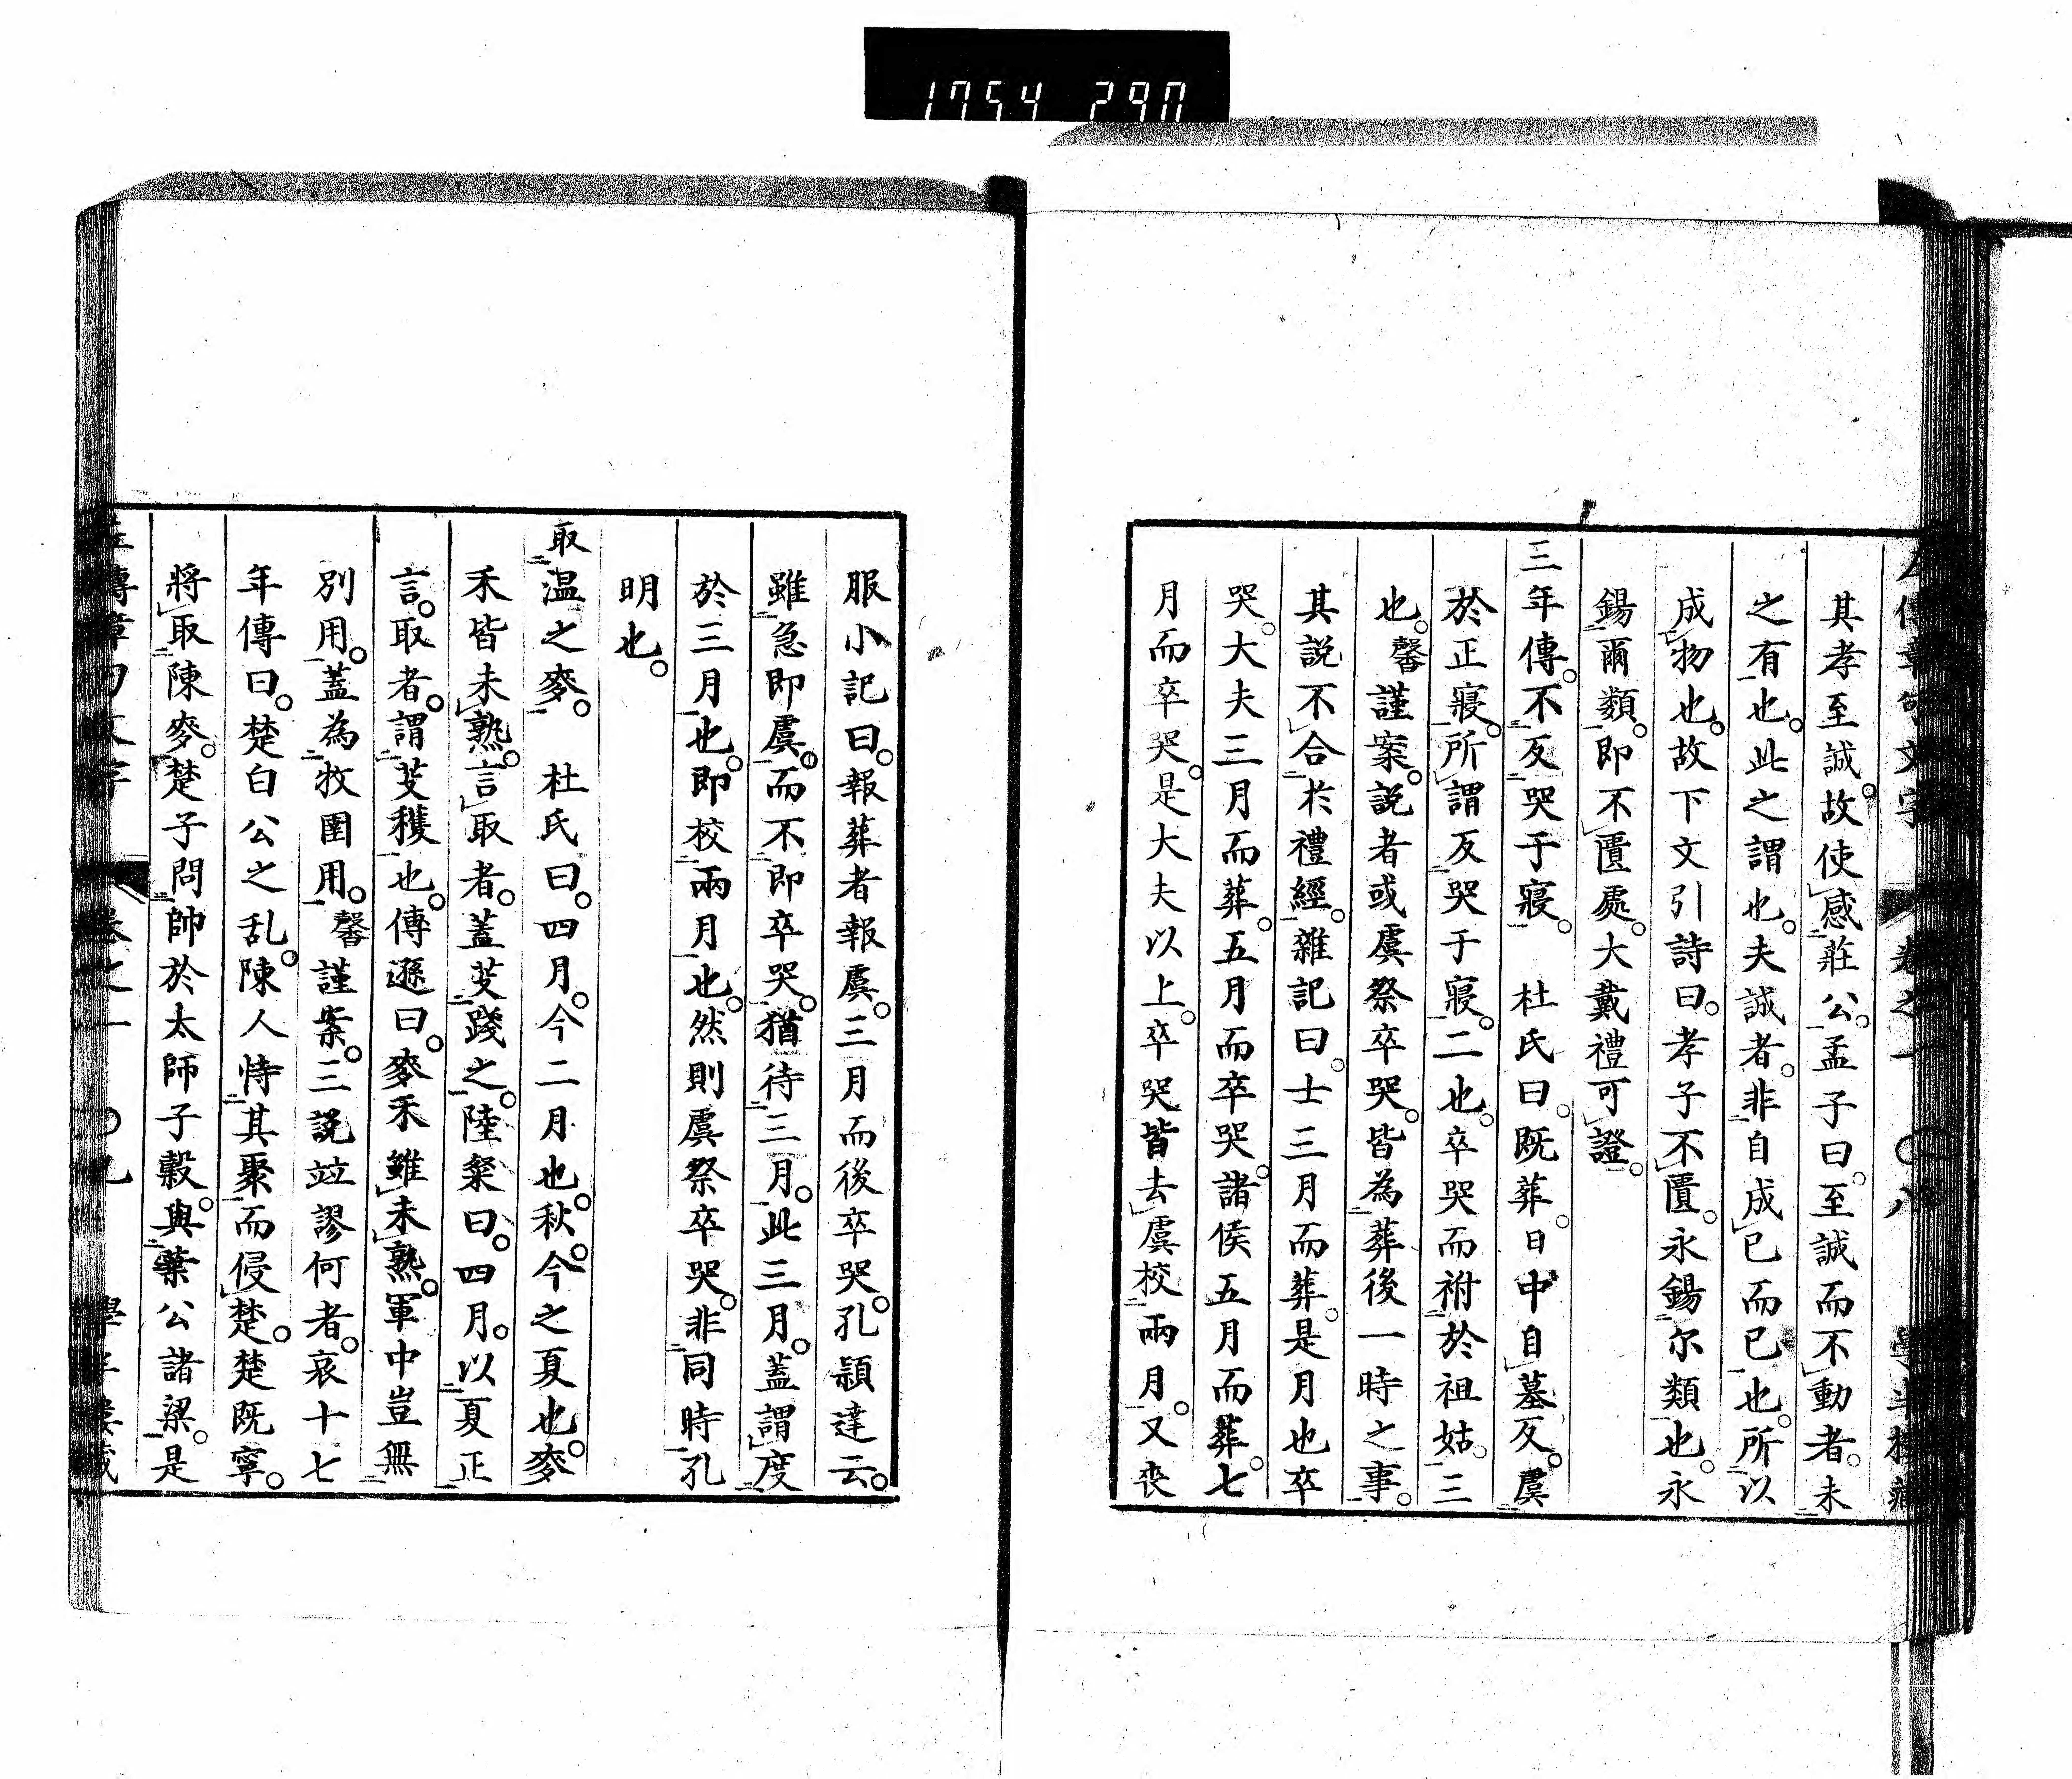 1754 290
其孝至誠。故使感莊公。孟子曰。至誠而不動者。未
之有也。此之謂也。夫誠者。非自成已而已也。所以
成物也。故下文引詩曰。孝子不匱。永錫尔類也。永
錫爾類。即不匱處。大戴禮可證。
三年傳。不反哭于寢。　杜氏曰。既葬。日中自墓反。虞
於正寢。所謂反哭于寢。二也。卒哭而祔於祖姑。三
也。馨謹案。説者或虞祭卒哭。皆為葬後一時之事。
其説不合於禮經。雜記曰。士三月而葬。是月也卒
哭。大夫三月而葬。五月而卒哭。諸侯五月而葬。七
月而卒哭。是大夫以上。卒哭皆去虞校兩月。又喪
服小記曰。報葬者報虞。三月而後卒哭。孔頴達云。
雖急即虞。而不即卒哭。猶待三月。此三月。蓋謂度
於三月也。即校兩月也。然則虞祭卒哭。非同時孔
明也。
取温之麥。　杜氏曰。四月。今二月也。秋。今之夏也。麥
禾皆未熟。言取者。蓋芟踐之。陸粲曰。四月。以夏正
言。取者。謂芟穫也。傳遜曰。麥禾雖未熟。軍中豈無
別用。蓋為牧圉用。馨謹案。三説竝謬何者。哀十七
年傳曰。楚白公之乱。陳人恃其聚而侵楚。楚既寧。
將取陳麥。楚子問帥於太師子穀。與葉公諸梁。是